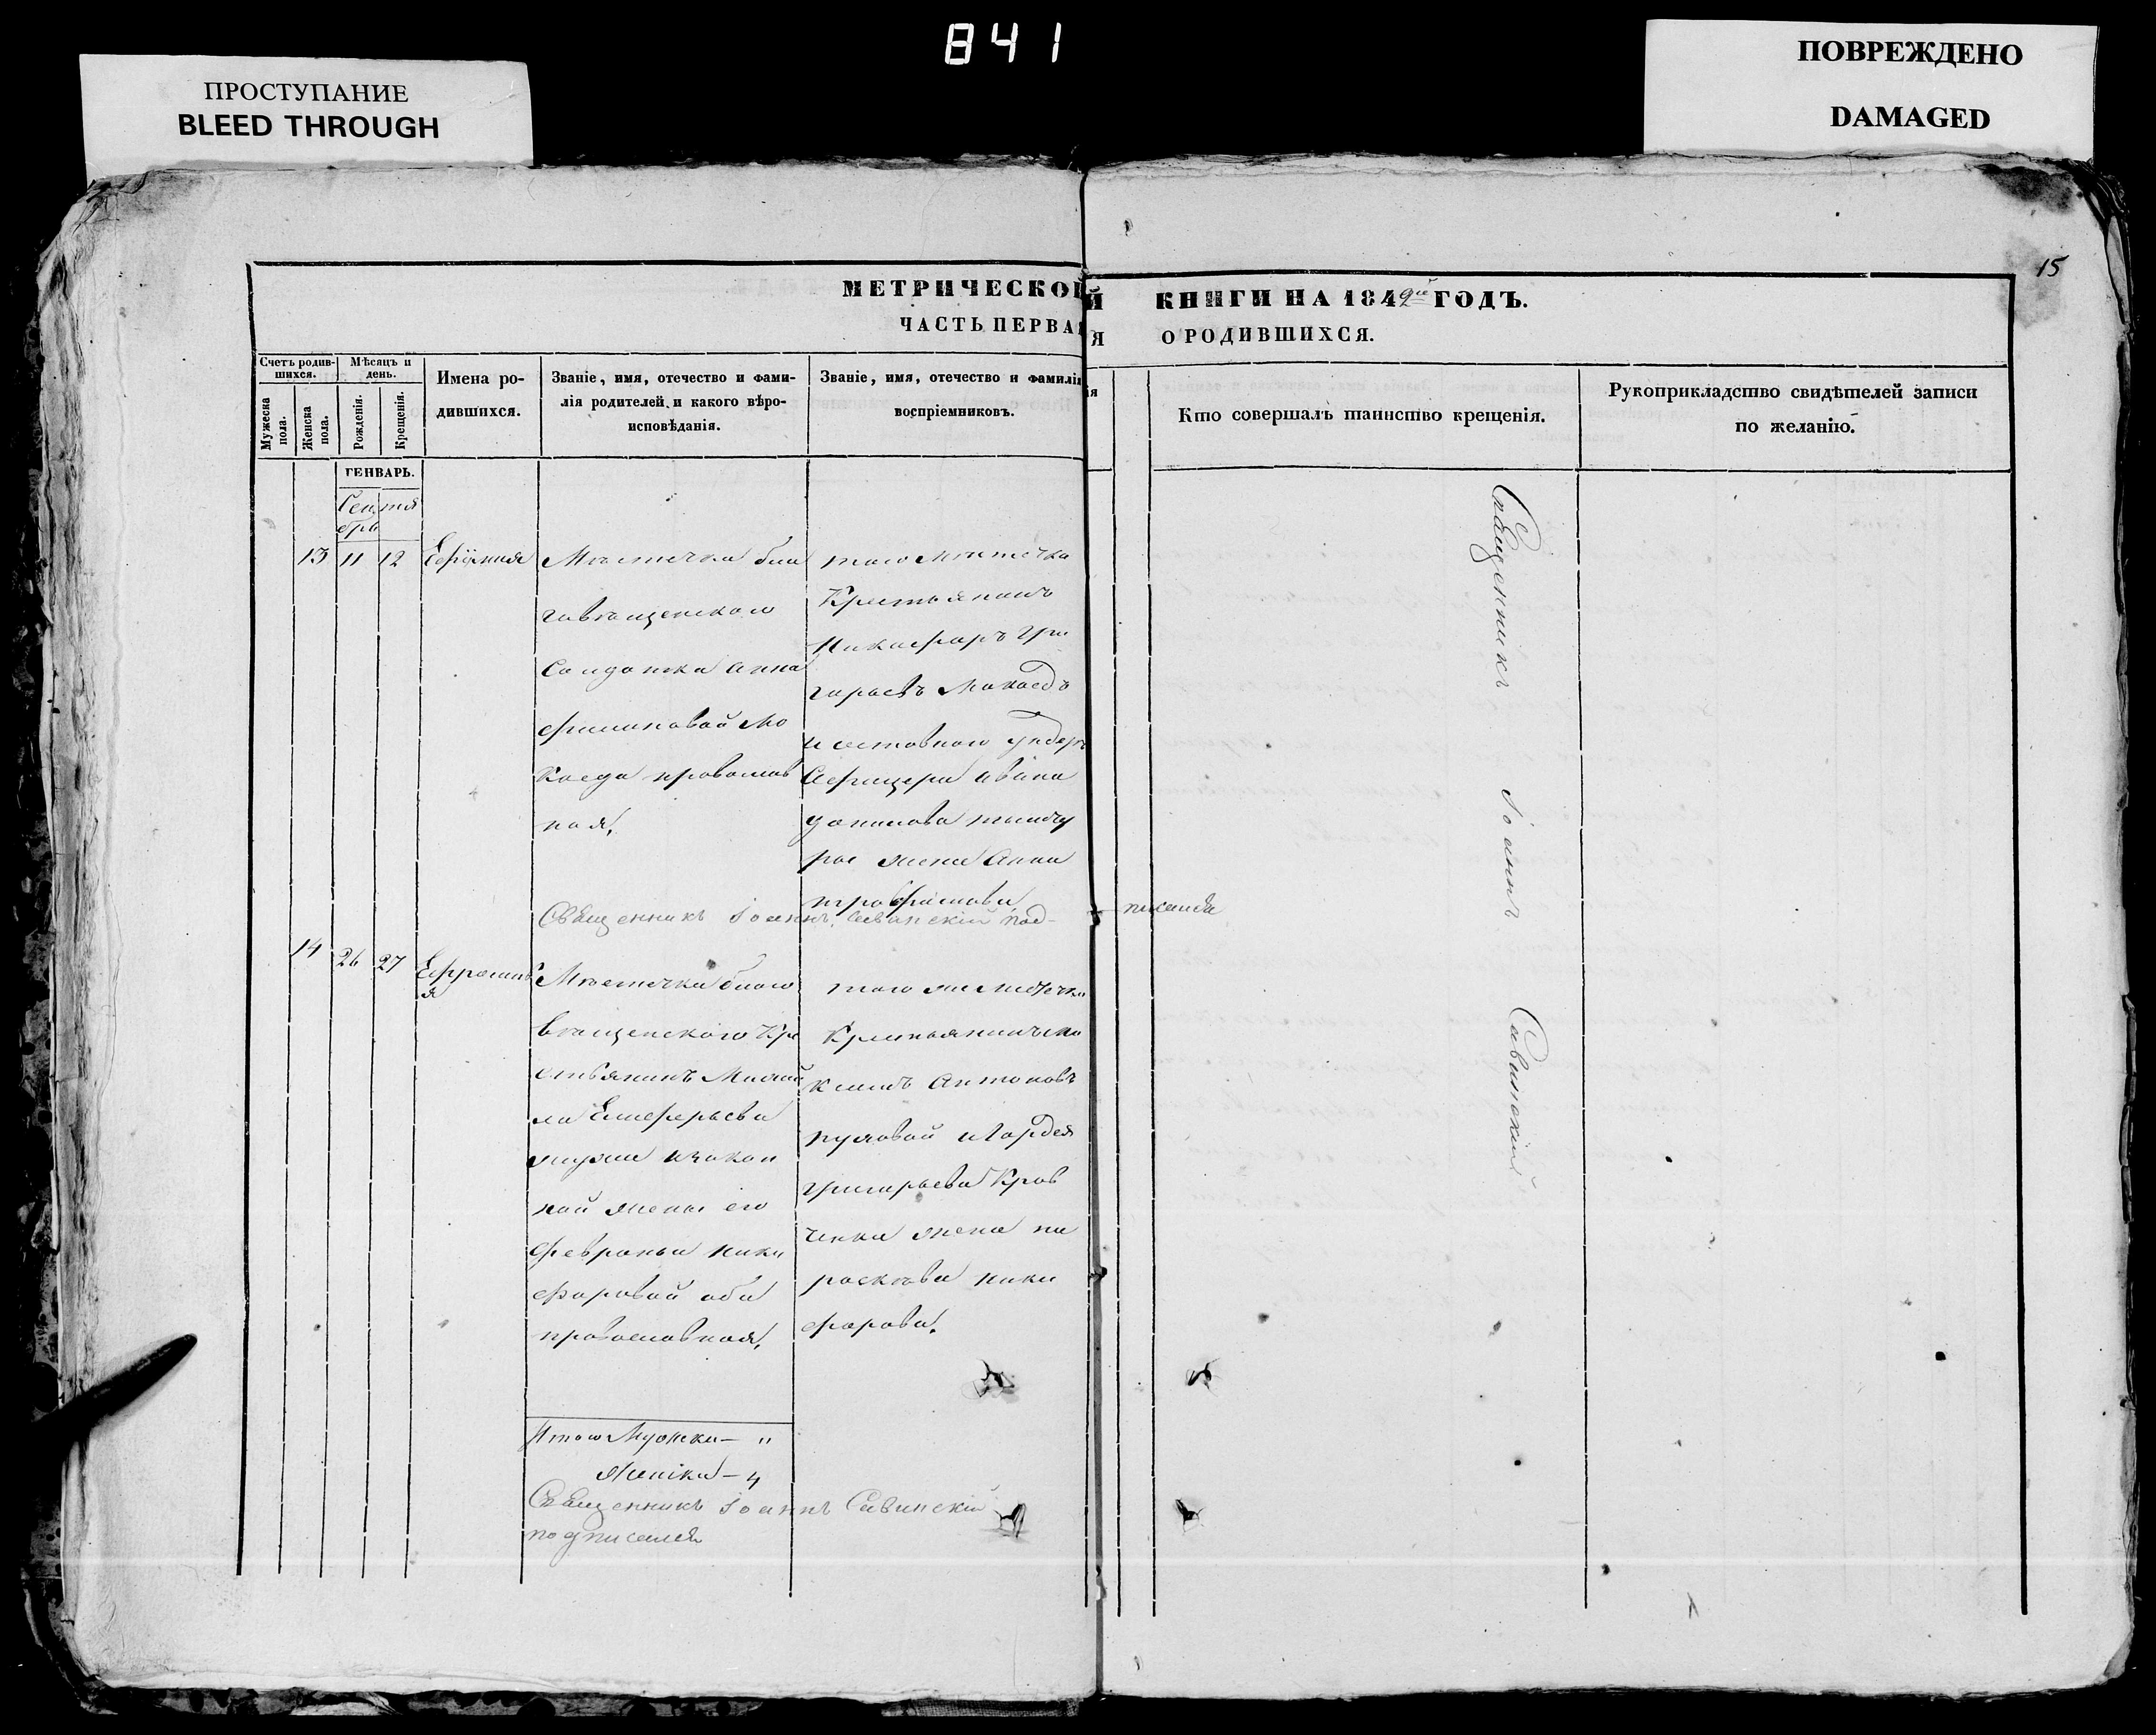 841
ПРОСТУПАНИЕ
BLEED THROUGH
ПОВРЕЖДЕНО
DAMAGED
15
МЕТРИЧЕСКОЙ КНИГИ НА 1849 ГОДЪ.
ЧАСТЬ ПЕРВАЯ О РОДИВШИХСЯ.
Счетъ родив-
шихся.
Мужеска
пола.
Женска
пола.
Мѣсяцъ и
день.
Рожденія.
Крещенія.
Имена ро-
дившихся.
Званіе, имя, отечество и фами-
лія родителей, и какого вѣро-
исповѣданія.
Званіе, имя, отечество и фамилія
воспріемниковъ.
Кто совершалъ таинство крещенія.
Рукоприкладство свидѣтелей записи
по желанію.
ГЕНВАРЬ.
Сентя
брь
13 11 12
Мѣстечка бла
говѣщенского
Солдатка Анна
Филиповой Мо
коеда православ
ная,
того мѣстечка
Крестьянинъ
Никифоръ Гри
горьевъ Мокоедъ
и отставного ундеръ
Афицера Ивана
жена Анна
Священникъ Іоаннъ Савинскій под-
писался
14 26 27
Ефросинi
я
Мѣстечка благо
вѣщенского Кре
стьянинъ Михай
ла Елиферьева
и закон
ной жены его
Февроньи Ники
форовой оба
православная,
того же мѣстечка
Крестьянинъ Ма
ксимъ Антоновъ
и Гордея
Григорьева Крав
ченка жена па
раскѣва Ники
форова,
Итого Мужска — "
Женска — 4
Священникъ Іоаннъ Савинскій
подписался
Священникъ Іоаннъ Савинскій